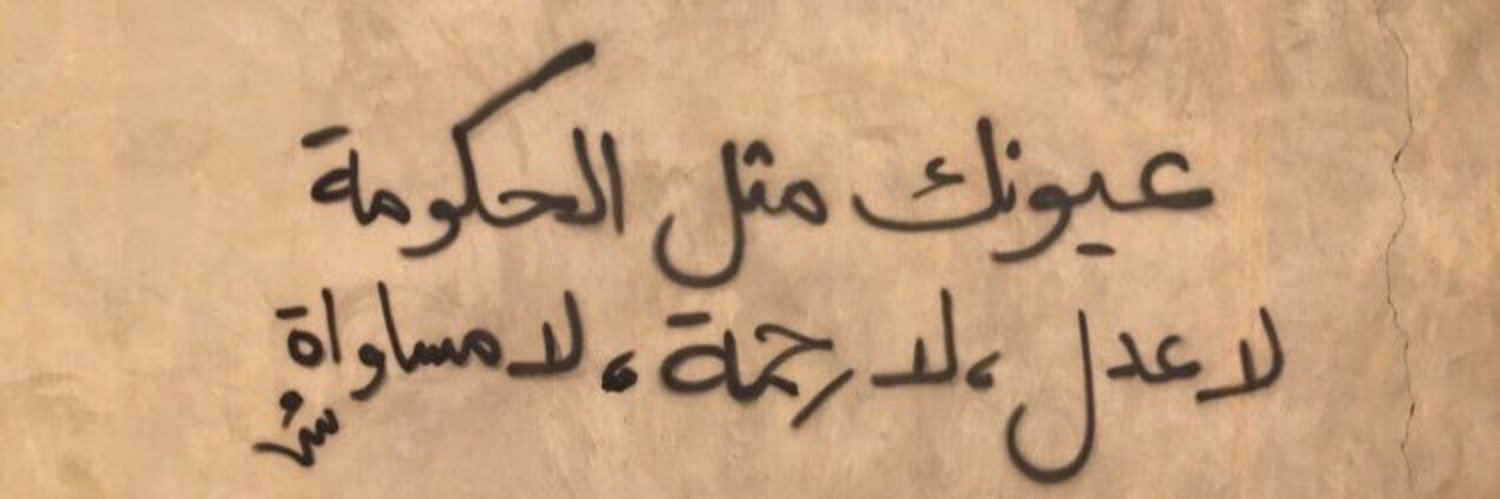 عيونك مثل الحكومة
لا عدل ،لا رحمة ، لا مساواة